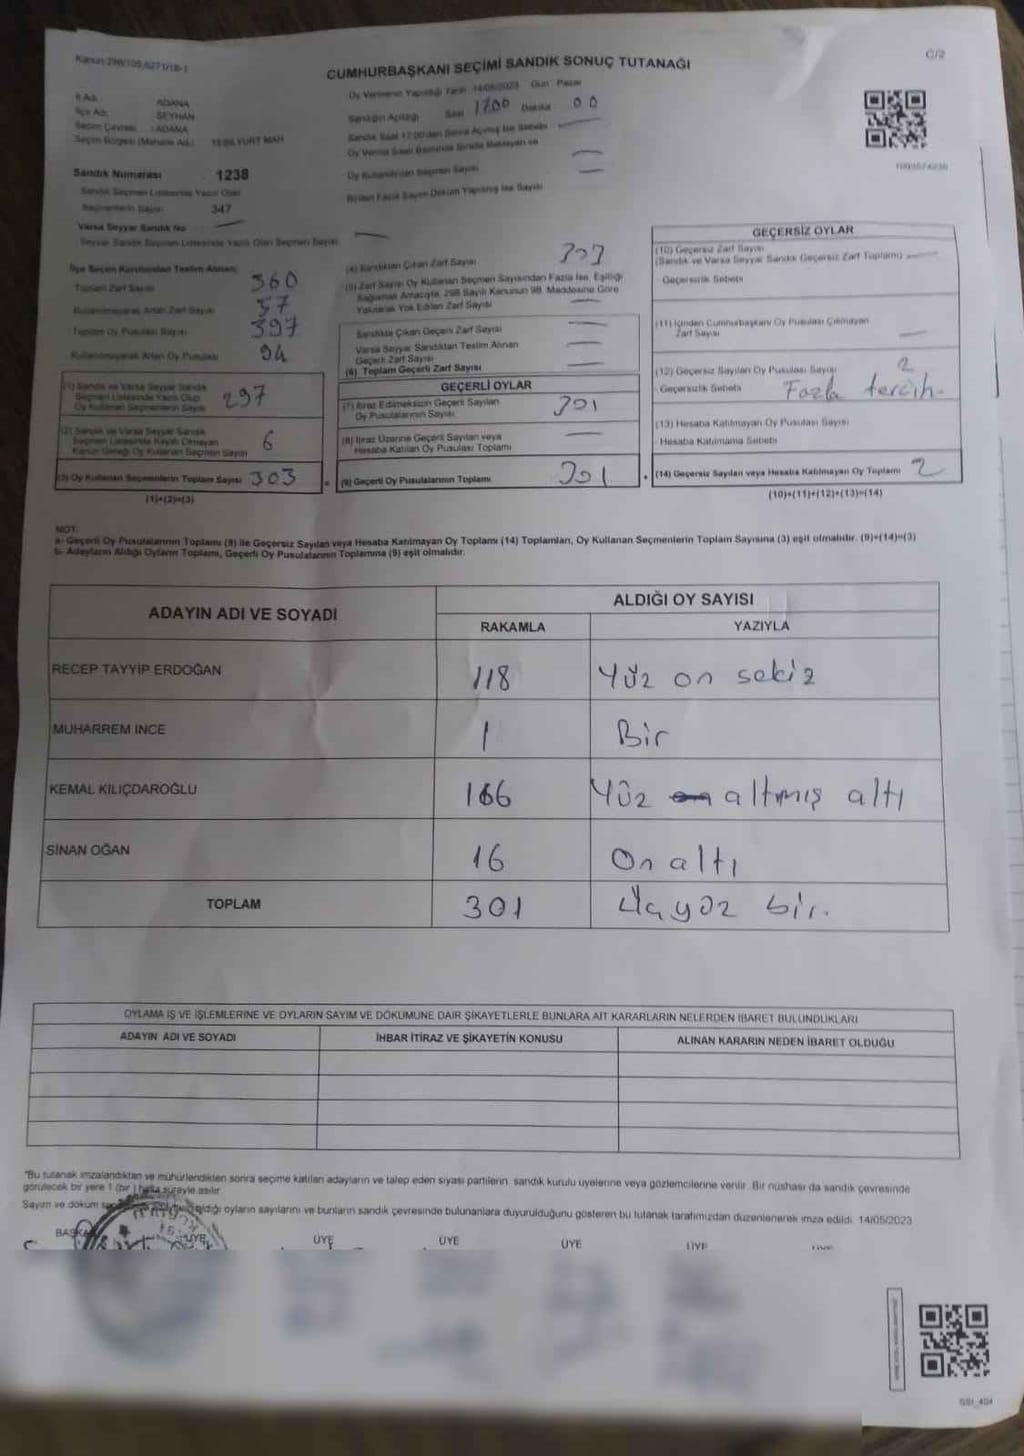 Kanun:298/105,6271/18-1
C/2
CUMHURBAŞKANI SEÇİMİ SANDIK SONUÇ TUTANAĞI
Oy Vermenin Yapıldığı Tarih 14/05/2023 Gün Pazar
Sandığın Açıldığı Saat 17.00 Dakika 00
Sandık Saat 17:00'den Sonra Açılmış İse Sebebi
Oy Verme Saati Bitiminde Sırada Bekleyen ve
Oy Kullandırılan Seçmen Sayısı
Birden Fazla Sayım Döküm Yapılmış İse Sayısı
İl Adı ADANA
İlçe Adı SEYHAN
Seçim Çevresi ADANA
Seçim Bölgesi (Mahalle Adı) YURT MAH
Sandık Numarası 1238
Sandık Seçmen Listesinde Yazılı Olan
Seçmenlerin Sayısı 347
Varsa Seyyar Sandık No
Seyyar Sandık Seçmen Listesinde Yazılı Olan Seçmen Sayısı
İlçe Seçim Kurulundan Teslim Alınan;
Toplam Zarf Sayısı 360
Kullanılmayarak Artan Zarf Sayısı 57
Toplam Oy Pusulası Sayısı 397
Kullanılmayarak Artan Oy Pusulası 94
(1) Sandık ve Varsa Seyyar Sandık
Seçmen Listesinde Yazılı Olup
Oy Kullanan Seçmenlerin Sayısı 297
(2) Sandık ve Varsa Seyyar Sandık
Seçmen Listesinde Kayıtlı Olmayan
Kanun Gereği Oy Kullanan Seçmen Sayısı 6
(3) Oy Kullanan Seçmenlerin Toplam Sayısı 303
(1)+(2)=(3)
(4) Sandıktan Çıkan Zarf Sayısı 303
(5) Zarf Sayısı Oy Kullanan Seçmen Sayısından Fazla İse, Eşitliği
Sağlamak Amacıyla, 298 Sayılı Kanunun 98. Maddesine Göre
Yakılarak Yok Edilen Zarf Sayısı
Sandıkta Çıkan Geçerli Zarf Sayısı
Varsa Seyyar Sandıktan Teslim Alınan
Geçerli Zarf Sayısı
(6) Toplam Geçerli Zarf Sayısı
GEÇERLİ OYLAR
(7) İtiraz Edilmeksizin Geçerli Sayılan
Oy Pusulalarının Sayısı 301
(8) İtiraz Üzerine Geçerli Sayılan veya
Hesaba Katılan Oy Pusulası Toplamı
(9) Geçerli Oy Pusulalarının Toplamı 301
GEÇERSİZ OYLAR
(10) Geçersiz Zarf Sayısı
(Sandık ve Varsa Seyyar Sandık Geçersiz Zarf Toplamı)
Geçersizlik Sebebi
(11) İçinden Cumhurbaşkanı Oy Pusulası Çıkmayan
Zarf Sayısı
(12) Geçersiz Sayılan Oy Pusulası Sayısı 2
Geçersizlik Sebebi Fazla tercih.
(13) Hesaba Katılmayan Oy Pusulası Sayısı
Hesaba Katılmama Sebebi
(14) Geçersiz Sayılan veya Hesaba Katılmayan Oy Toplamı 2
(10)+(11)+(12)+(13)=(14)
NOT:
a- Geçerli Oy Pusulalarının Toplamı (9) ile Geçersiz Sayılan veya Hesaba Katılmayan Oy Toplamı (14) Toplamları, Oy Kullanan Seçmenlerin Toplam Sayısına (3) eşit olmalıdır. (9)+(14)=(3)
b- Adayların Aldığı Oyların Toplamı, Geçerli Oy Pusulalarının Toplamına (9) eşit olmalıdır.
ADAYIN ADI VE SOYADI
ALDIĞI OY SAYISI
RAKAMLA YAZIYLA
RECEP TAYYİP ERDOĞAN 118 Yüz on sekiz
MUHARREM İNCE 1 Bir
KEMAL KILIÇDAROĞLU 166 Yüz altmış altı
SİNAN OĞAN 16 On altı
TOPLAM 301 Üçyüz bir.
OYLAMA İŞ VE İŞLEMLERİNE VE OYLARIN SAYIM VE DÖKÜMÜNE DAİR ŞİKAYETLERLE BUNLARA AİT KARARLARIN NELERDEN İBARET BULUNDUKLARI
ADAYIN ADI VE SOYADI İHBAR İTİRAZ VE ŞİKAYETİN KONUSU ALINAN KARARIN NEDEN İBARET OLDUĞU
"Bu tutanak imzalandıktan ve mühürlendikten sonra seçime katılan adayların ve talep eden siyasi partilerin sandık kurulu üyelerine veya gözlemcilerine verilir. Bir nüshası da sandık çevresinde
görülecek bir yere 1 (bir) hafta süreyle asılır.
Sayım ve döküm aldığı oyların sayılarını ve bunların sandık çevresinde bulunanlara duyurulduğunu gösteren bu tutanak tarafımızdan düzenlenerek imza edildi. 14/05/2023
BAŞKAN ÜYE ÜYE ÜYE ÜYE ÜYE ÜYE